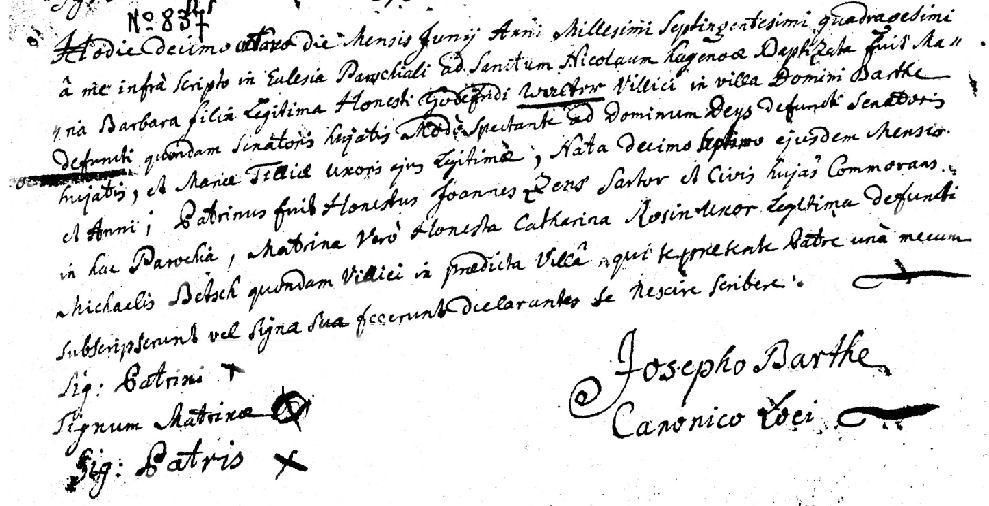 No 837
Hodie decimo octavo die Mensis Junij Anni Millesimi Septingentesimi quadragesimi
â me infrà Scripto in Eulesia Parochiali ad Sanctum Nicolaum hagenoæ Baptizata fuit Ma=
ria Barbara filia Legitima Honesti Godefridi Walter Villici in villa Domini Barthe
defuncti quondam Senatoris hujatis Modò Spectante ad Dominum Deys defuncti Senatoris
hujatis, et Mariæ uxoris ejus Legitimæ; Nata decimo septimo ejusdem Mensis
et Anni; Patrinus fuit Honestus Joannes Zens Sartor et Civis hujas Commorans
in hac Parochia, Matrina Verò Honesta Catharina Rosin Uxor Legitima defuncti
Michaelis Betsch quondam Villici in prædicta Villâ qui præsente Patre unà mecum
subscripserunt vel signa sua fecerunt declarantes se Nescire scribere.
Sig: Patrini +
Josepho Barthe
Signum Matrinæ
Canonico Loci
Sig: Patris x